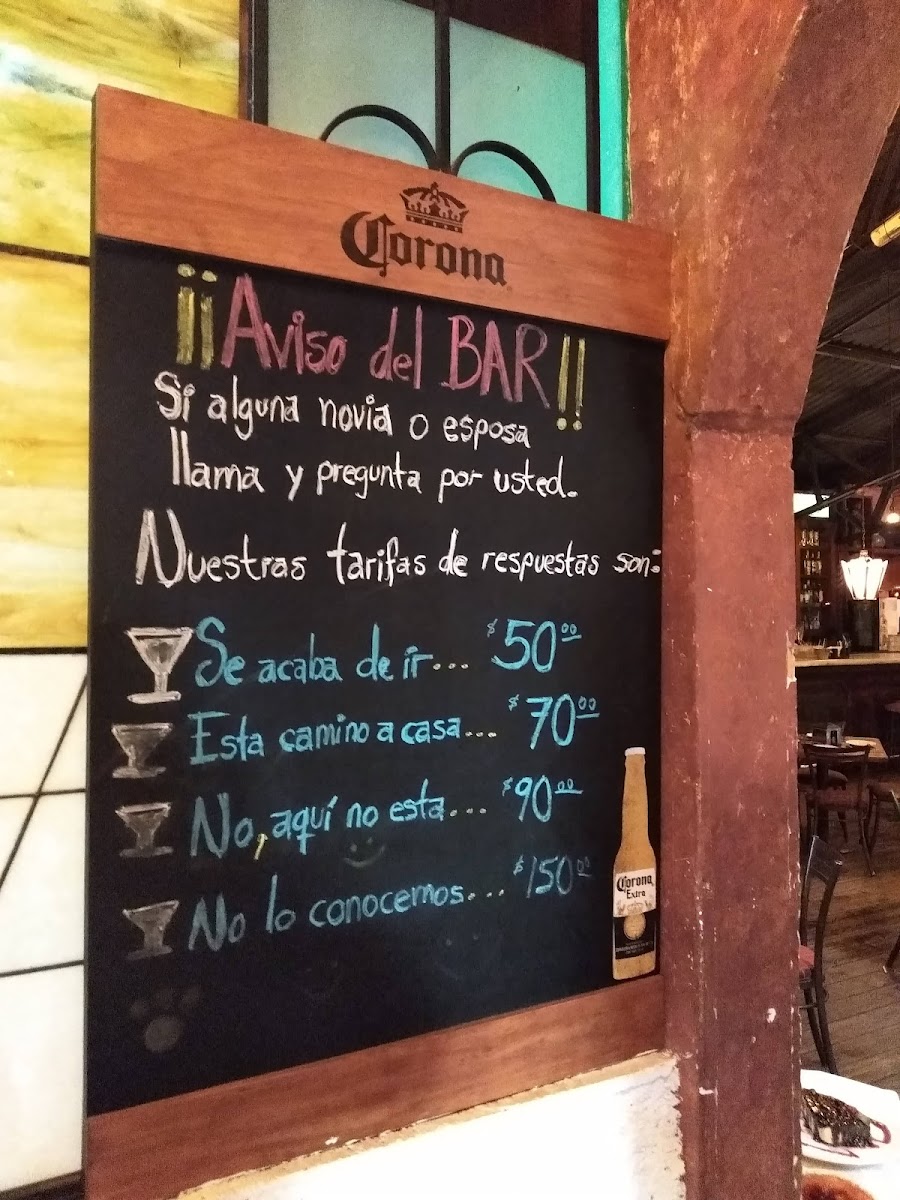 Corona
¡¡Aviso del BAR!!
Si alguna novia o esposa
llama y pregunta por usted.
Nuestras tarifas de respuestas son:
Se acaba de ir... $50.00
Esta camino a casa... $70.00
No, aquí no esta... $90.00
No lo conocemos... $150.00
Corona
Extra